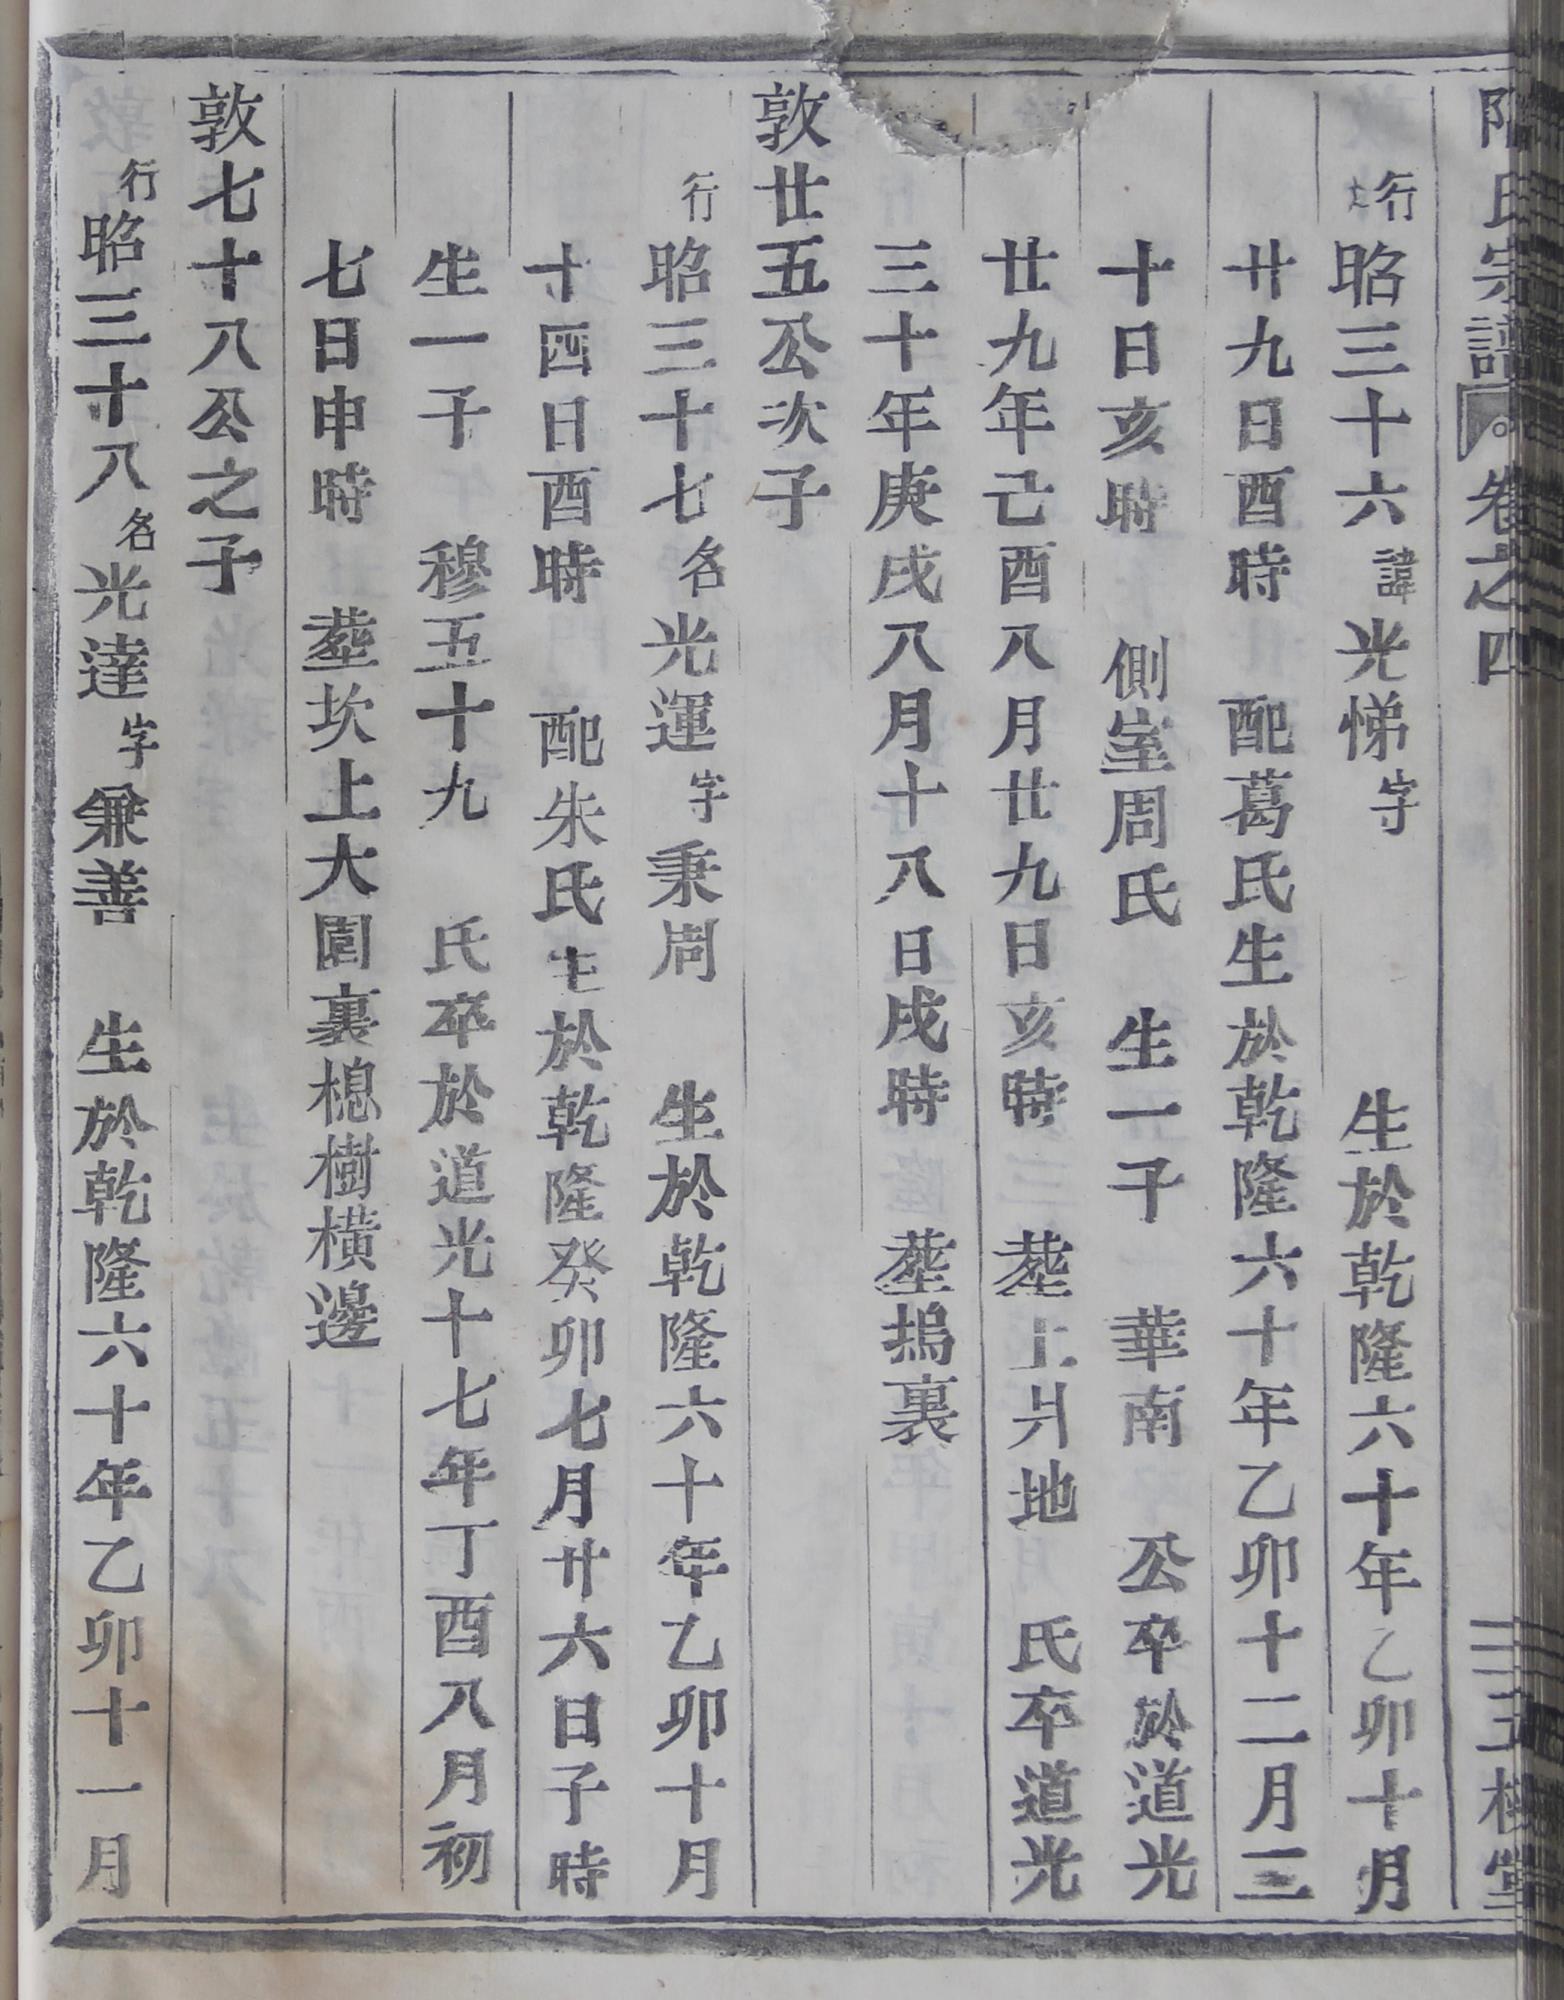 氏宗譜 卷之四 三槐堂
行昭三十六諱光悌字 生於乾隆六十年乙卯十月
廿九日酉時 配葛氏生於乾隆六十年乙卯十二月三
十日亥時 側室周氏 生一子 華南 公卒於道光
廿九年己酉八月廿九日亥時 塟上爿地 氏卒道光
三十年庚戌八月十八日戌時 塟塢裏
敦廿五公次子
行昭三十七名光運字秉周 生於乾隆六十年乙卯十月
十四日酉時 配朱氏生於乾隆癸卯七月廿六日子時
生一子 穆五十九 氏卒於道光十七年丁酉八月初
七日申時 塟坎上大園裏樬樹橫邊
敦七十八公之子
行昭三十八名光達字兼善 生於乾隆六十年乙卯十一月